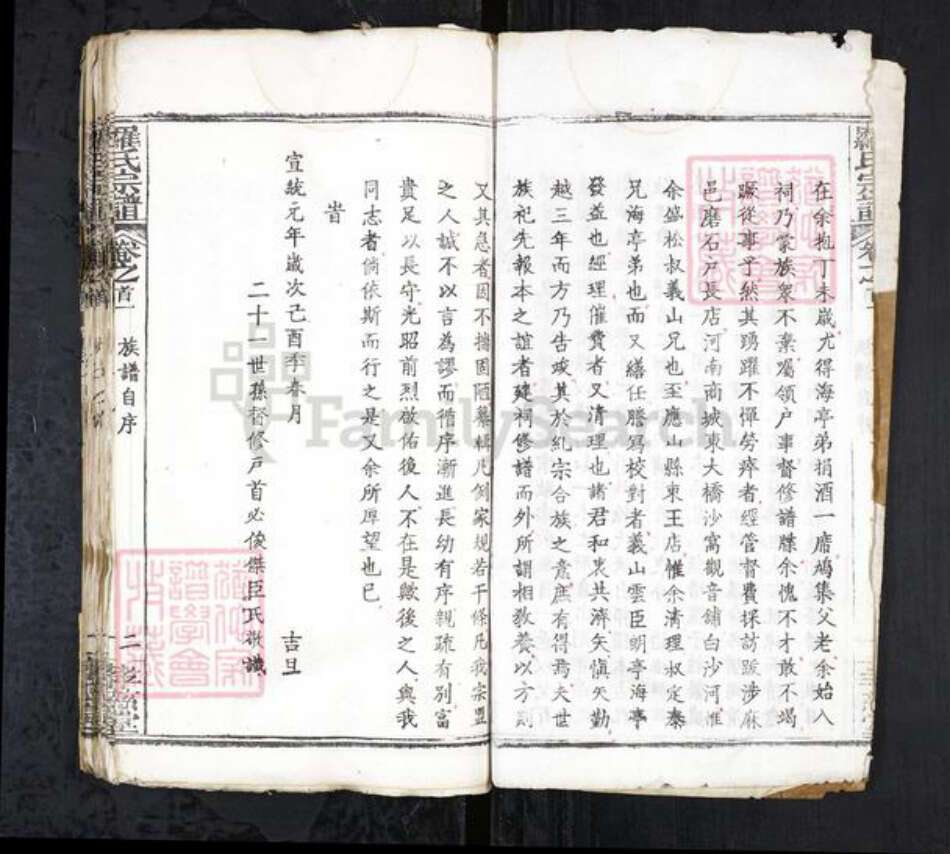 在余抱丁未歲尤得海亭弟捐酒一席鳩集父老余始入
祠乃蒙族衆不棄囑領户事督修譜牒余愧不才敢不竭
蹶從事乎然其踴躍不憚勞瘁者經管督費採訪跋涉麻
邑磨石户長店河南商城東大橋沙窩觀音鋪白沙河惟
余盛松叔義山兄也至應山縣東王店惟余清理叔定泰
兄海亭弟也而又繕任謄寫校對者義山雲臣明亭海亭
發益也經理催費者又清理也諸君和衷共濟矢慎矢勤
越三年而方乃告竣其於糾宗合族之意庶有得焉夫世
族祀先報本之誼者建祠修譜而外所謂相教養以方則
又其急者因不揣固陋纂輯凡例家規若干條凡我宗盟
之人誠不以言為謬而循序漸進長幼有序親疏有别富
貴足以長守光昭前烈啟佑後人不在是歟後之人與我
同志者倘依斯而行之是又余所厚望也已
旹
宣統元年歲次己酉季春月 吉旦
二十一世孫督修户首必俊傑臣氏敬識
羅氏宗譜 卷之首一 族譜自序 二
FamilySearch